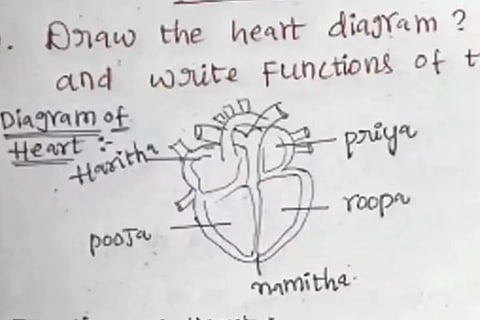 . Draw the heart diagram ?
and write Functions of t
Diagram of
Heart :-
Haritha
priya
pooja
roopa
namitha.